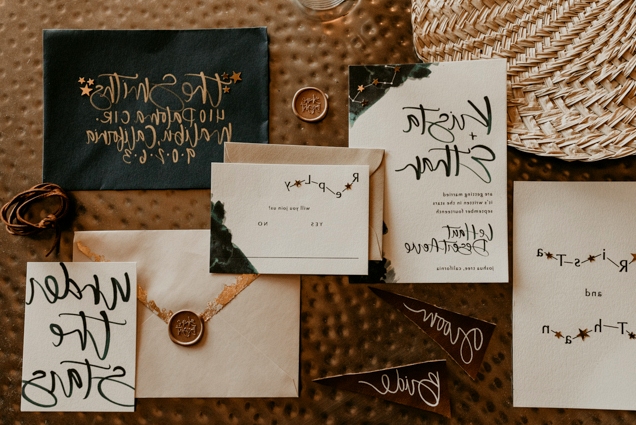 the Smiths
410 Paloma Cir.
Malibu, California
9.0.2.6.3
Krista
+
Ethan
are getting married
it's written in the stars
september fourteenth
Le Haut
Desert Aerie
joshua tree, california
RepLy
will you join us?
YES NO
RisTa
and
Than
under
the
stars
Groom
Bride